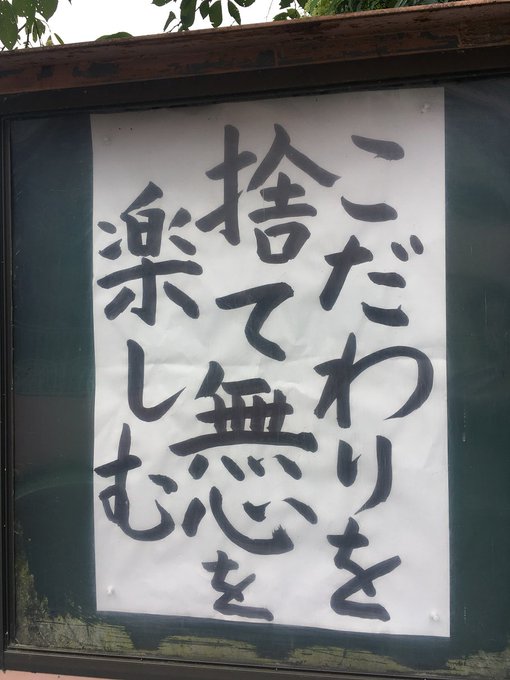 こだわりを
捨て無心を
楽しむ